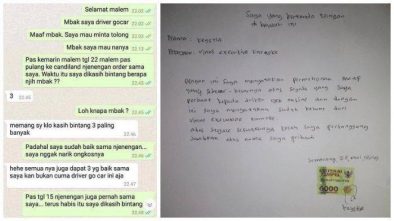 Selamat malem 22.02
Mbak saya driver gocar 22.02
Maaf mbak. Saya mau minta tolong 22.03
Mbak saya mau nanya 22.13
Pas kemarin malem tgl 22 malem pas
pulang ke candiland njenengan order sama
saya. Waktu itu saya dikasih bintang berapa
njih mbak ??
3 22.45
Loh knapa mbak ? 22.45
memang sy klo kasih bintang 3 paling
banyak 22.46
Padahal saya sudah baik sama njenengan...
saya nggak narik ongkosnya 22.46
hehe semua nya juga dapat 3 yg baik sama
saya kan bukan cuma driver go car ini aja
22.47
Pas tgl 15 njenengan juga pernah sama
saya... terus habis itu saya dikasih bintang
Saya yang bertanda tangan
di bawah ini
Nama :
Dengan ini saya mengajukan permohonan maaf
yang sebesar-besarnya atas segala yang saya
perbuat kepada driver ojek online dan dengan
ini saya mengatakan sudah keluar dari
vinus executive karaoke
atas nama saya pribadi
Semarang,
6000